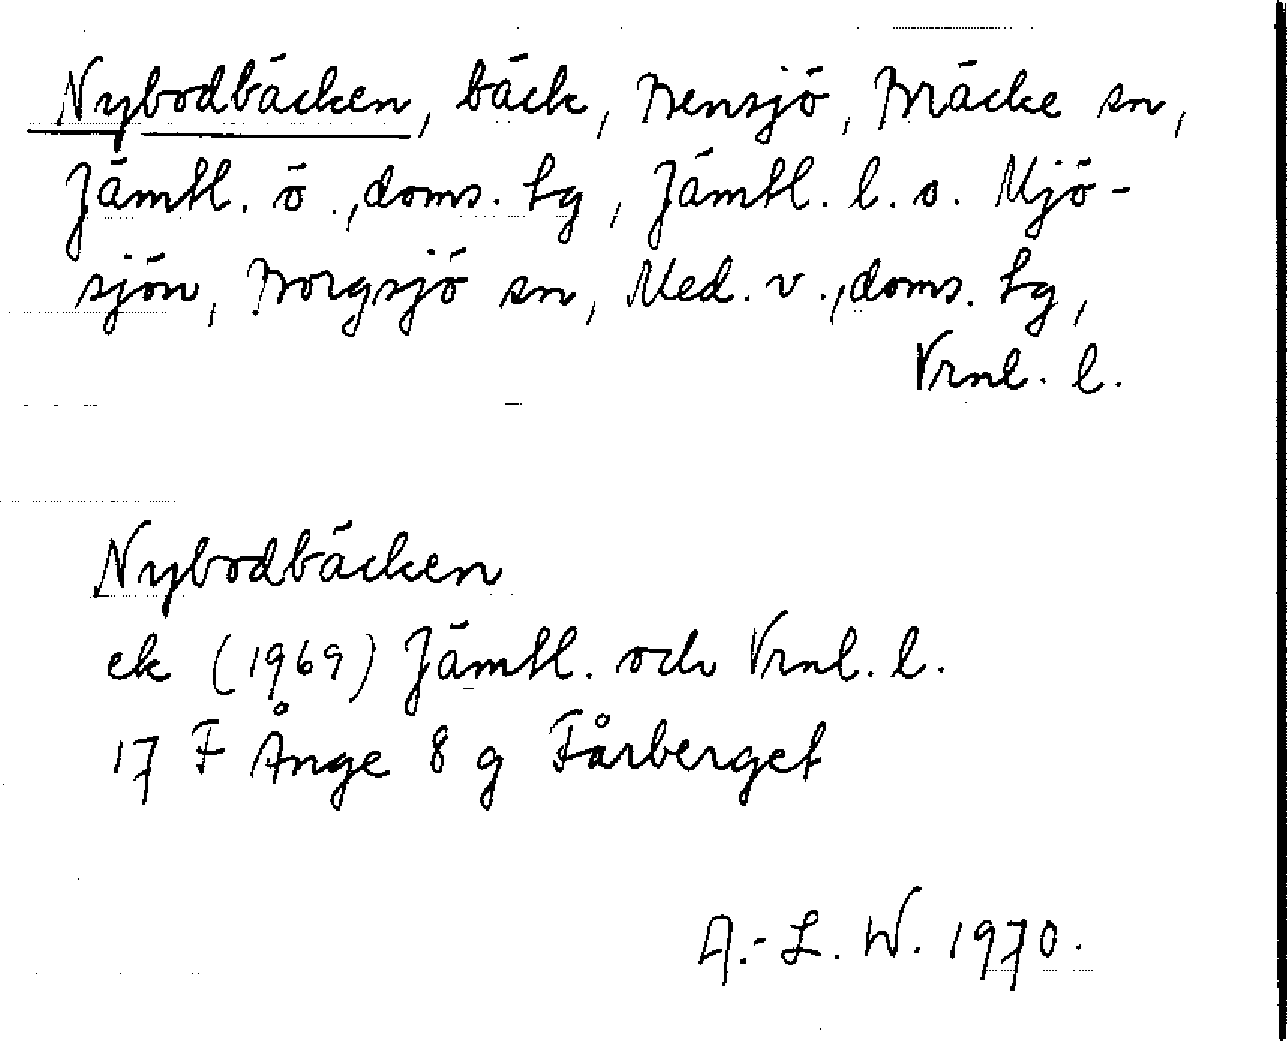 Nybodbäcken, bäck, Bensjö, Bräcke sn,
Jämtl. ö., doms. tg, Jämtl. l. o. Mjö-
sjön, Borgsjö sn, Med. v., doms. tg,
Vrnl. l.
Nybodbäcken
ek (1969) Jämtl. och Vrnl. l.
17 F Ånge 8 g Fårberget
A.-L. W. 1970.